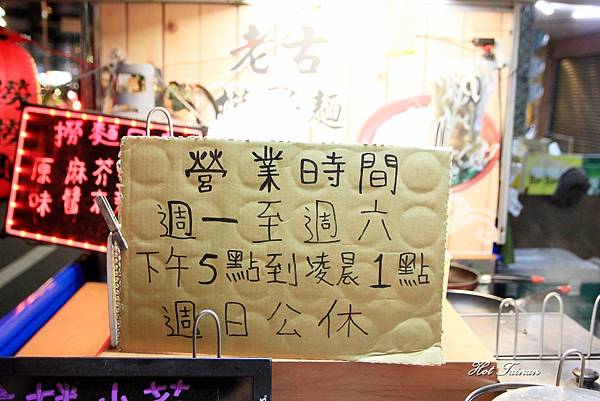 老古
麵
營業時間
週一至週六
下午5點到凌晨1點
週日公休
撈麵
原麻芥
味醬
Hot Tainan